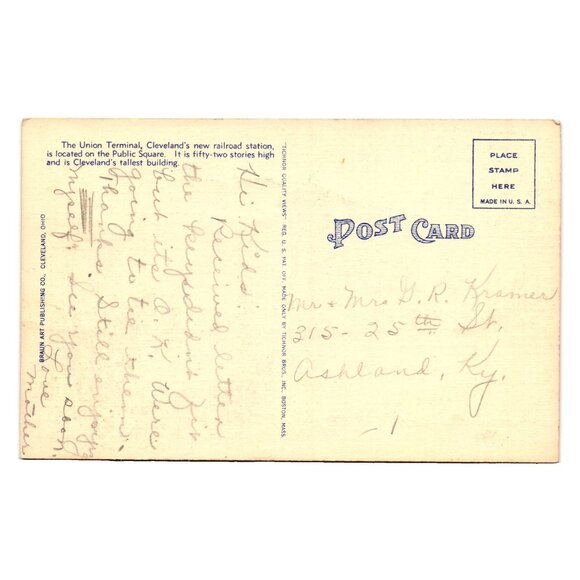 The Union Terminal, Cleveland's new railroad station,
is located on the Public Square. It is fifty-two stories high
and is Cleveland's tallest building.
Hi Kids:
Received letter
the keys didn't fit
but its O.K. Were
going to tie them.
Thanks. Still enjoying
myself. See you soon.
Love
Mother
BRAUN ART PUBLISHING CO., CLEVELAND, OHIO
TICHNOR QUALITY VIEWS" REG. U. S. PAT. OFF. MADE ONLY BY TICHNOR BROS., INC. BOSTON, MASS.
POST CARD
PLACE
STAMP
HERE
MADE IN U. S. A.
Mr + Mrs G. R. Kramer
315-25th St.
Ashland, Ky.
-1